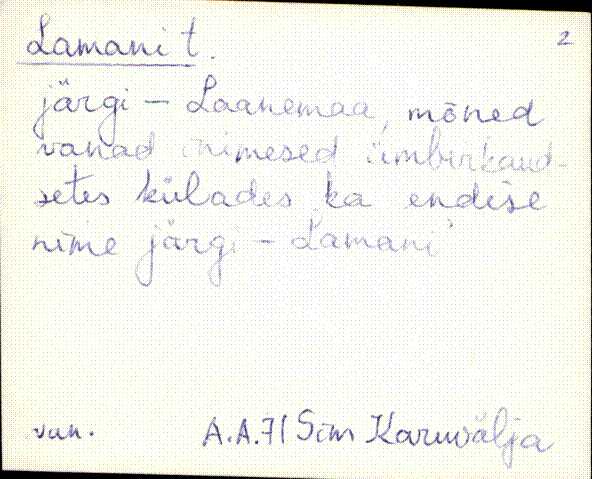 Lamani t. 2
järgi - Laanemaa, mõned
vanad inimesed ümberkaud-
setes külades ka endise
nime järgi - Lamani
van. A.A.71 Sim Karuvälja